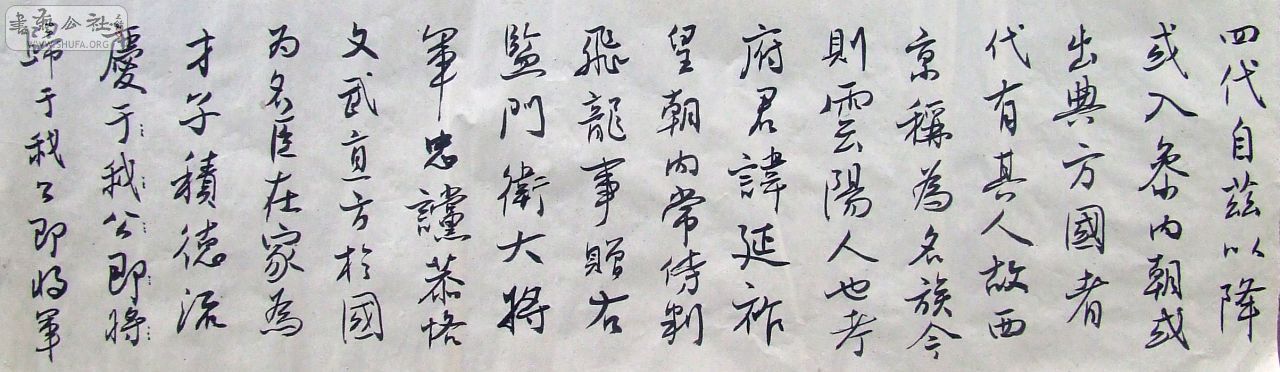 四代自茲以降
或入參內朝或
出典方國者
代有其人故西
京稱為名族今
則雲陽人也考
府君諱延祚
皇朝內常侍判
飛龍事贈右
監門衛大將
軍忠讜恭恪
文武直方於國
为名臣在家為
才子積德流
慶于我公即將
歸于我公即將軍
書法公社
WWW.SHUFA.ORG